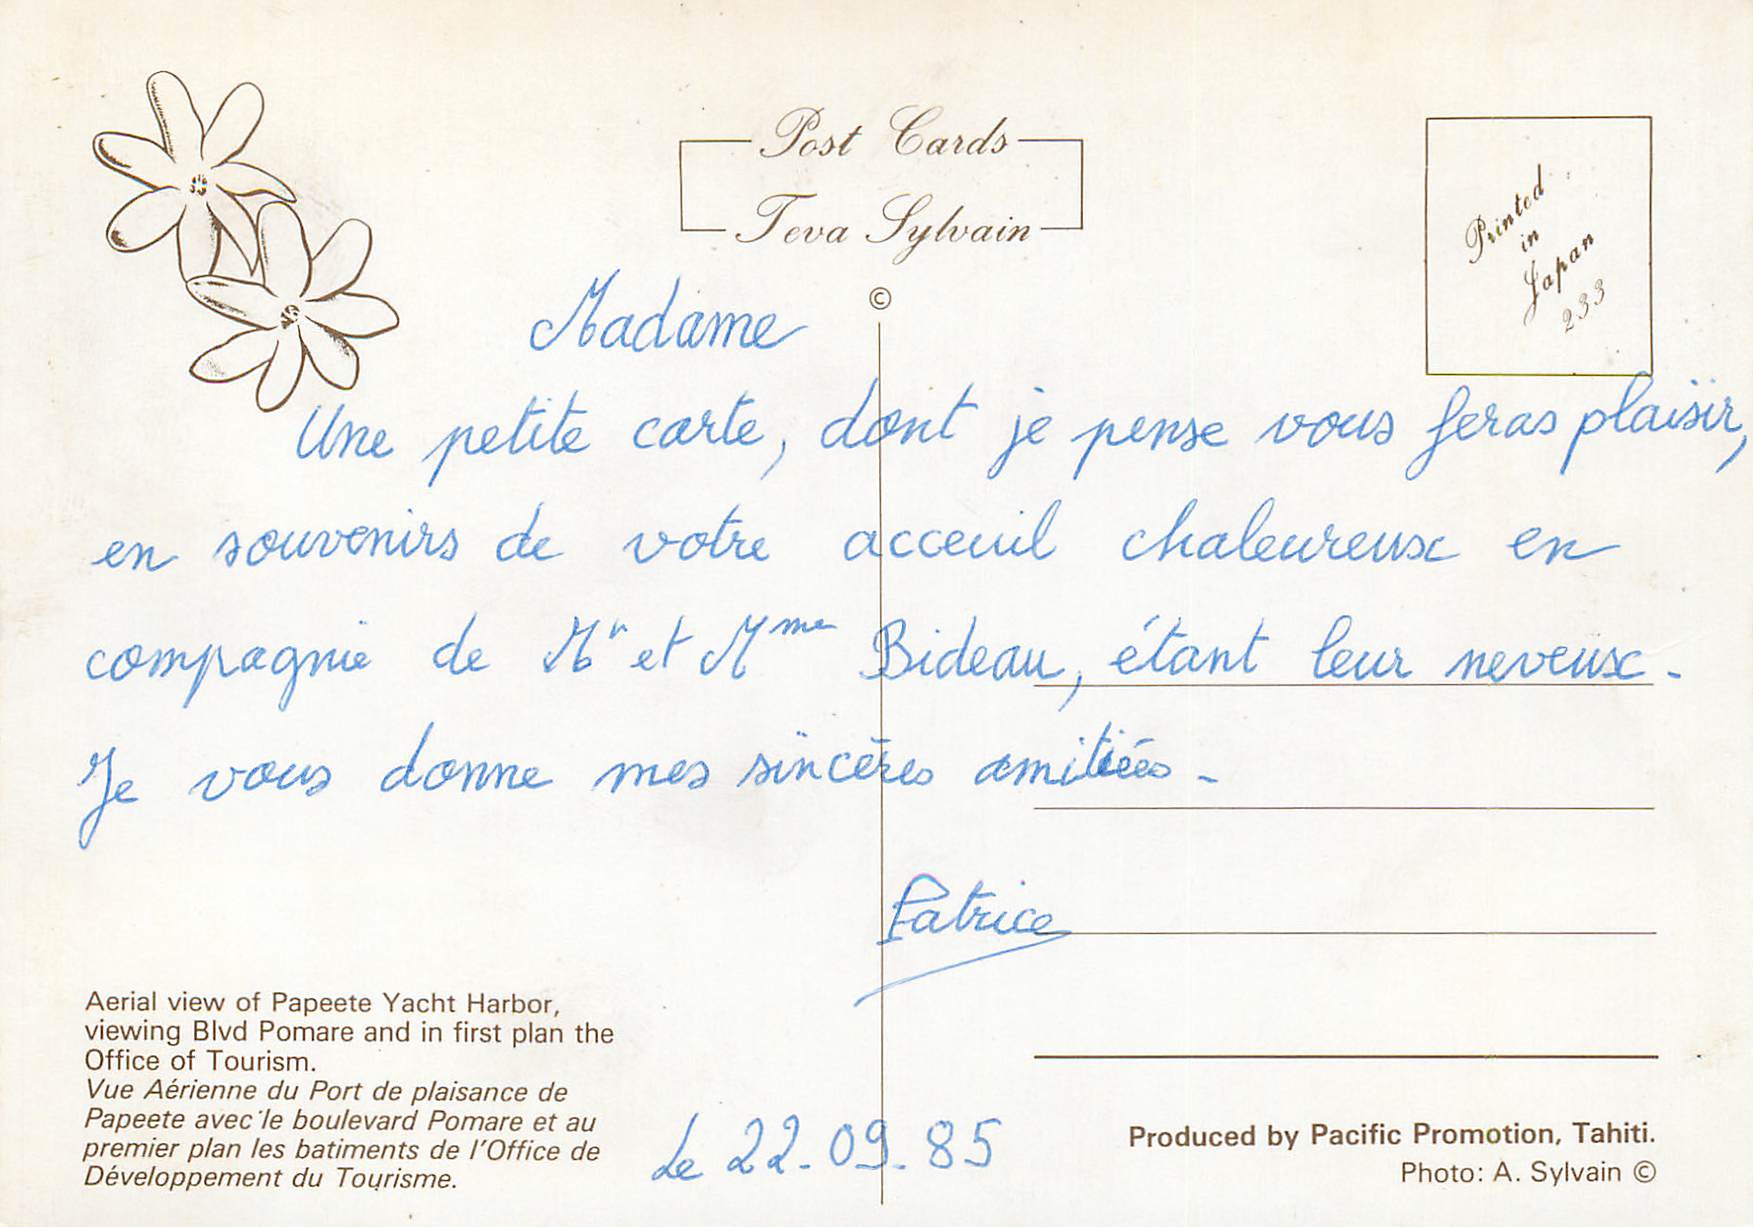 Post Cards
Teva Sylvain
©
Printed
in
Japan
233
Madame
Une petite carte, dont je pense vous feras plaisir,
en souvenirs de votre acceuil chaleureux en
compagnie de Mr et Mme Bideau, étant leur neveux.
Je vous donne mes sincères amitiées.
Patrice
Aerial view of Papeete Yacht Harbor,
viewing Blvd Pomare and in first plan the
Office of Tourism.
Vue Aérienne du Port de plaisance de
Papeete avec le boulevard Pomare et au
premier plan les batiments de l'Office de
Développement du Tourisme.
Le 22.09.85
Produced by Pacific Promotion, Tahiti.
Photo: A. Sylvain ©